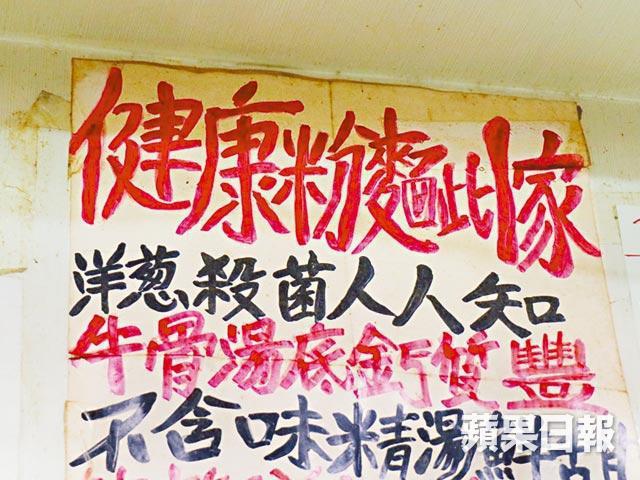 健康粉麵此傢
洋葱殺菌人人知
牛骨湯底鈣質豐
不含味精湯鮮
蘋果日報